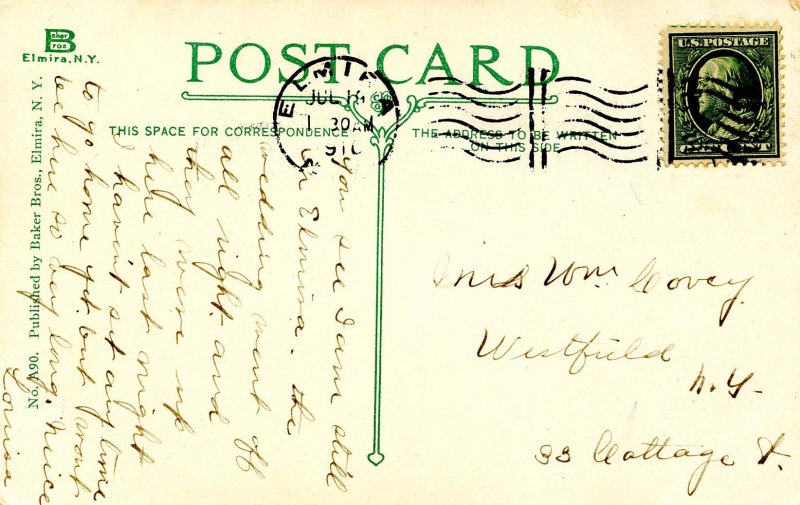 Baker
Bros
Elmira, N.Y.
POST CARD
THIS SPACE FOR CORRESPONDENCE
THE ADDRESS TO BE WRITTEN
ON THIS SIDE
ELMIRA
JUL 18
1 30AM
191
U.S. POSTAGE
No. A90. Published by Baker Bros., Elmira, N. Y.
you see I am still
in Elmira. the
wedding went off
all right and
they were up
here last night
I havin't set any time
to go home yet but I wont
be here so very long. Niece
Louisa
Mrs Wm Covey
Westfield
N.Y.
33 Cottage St.